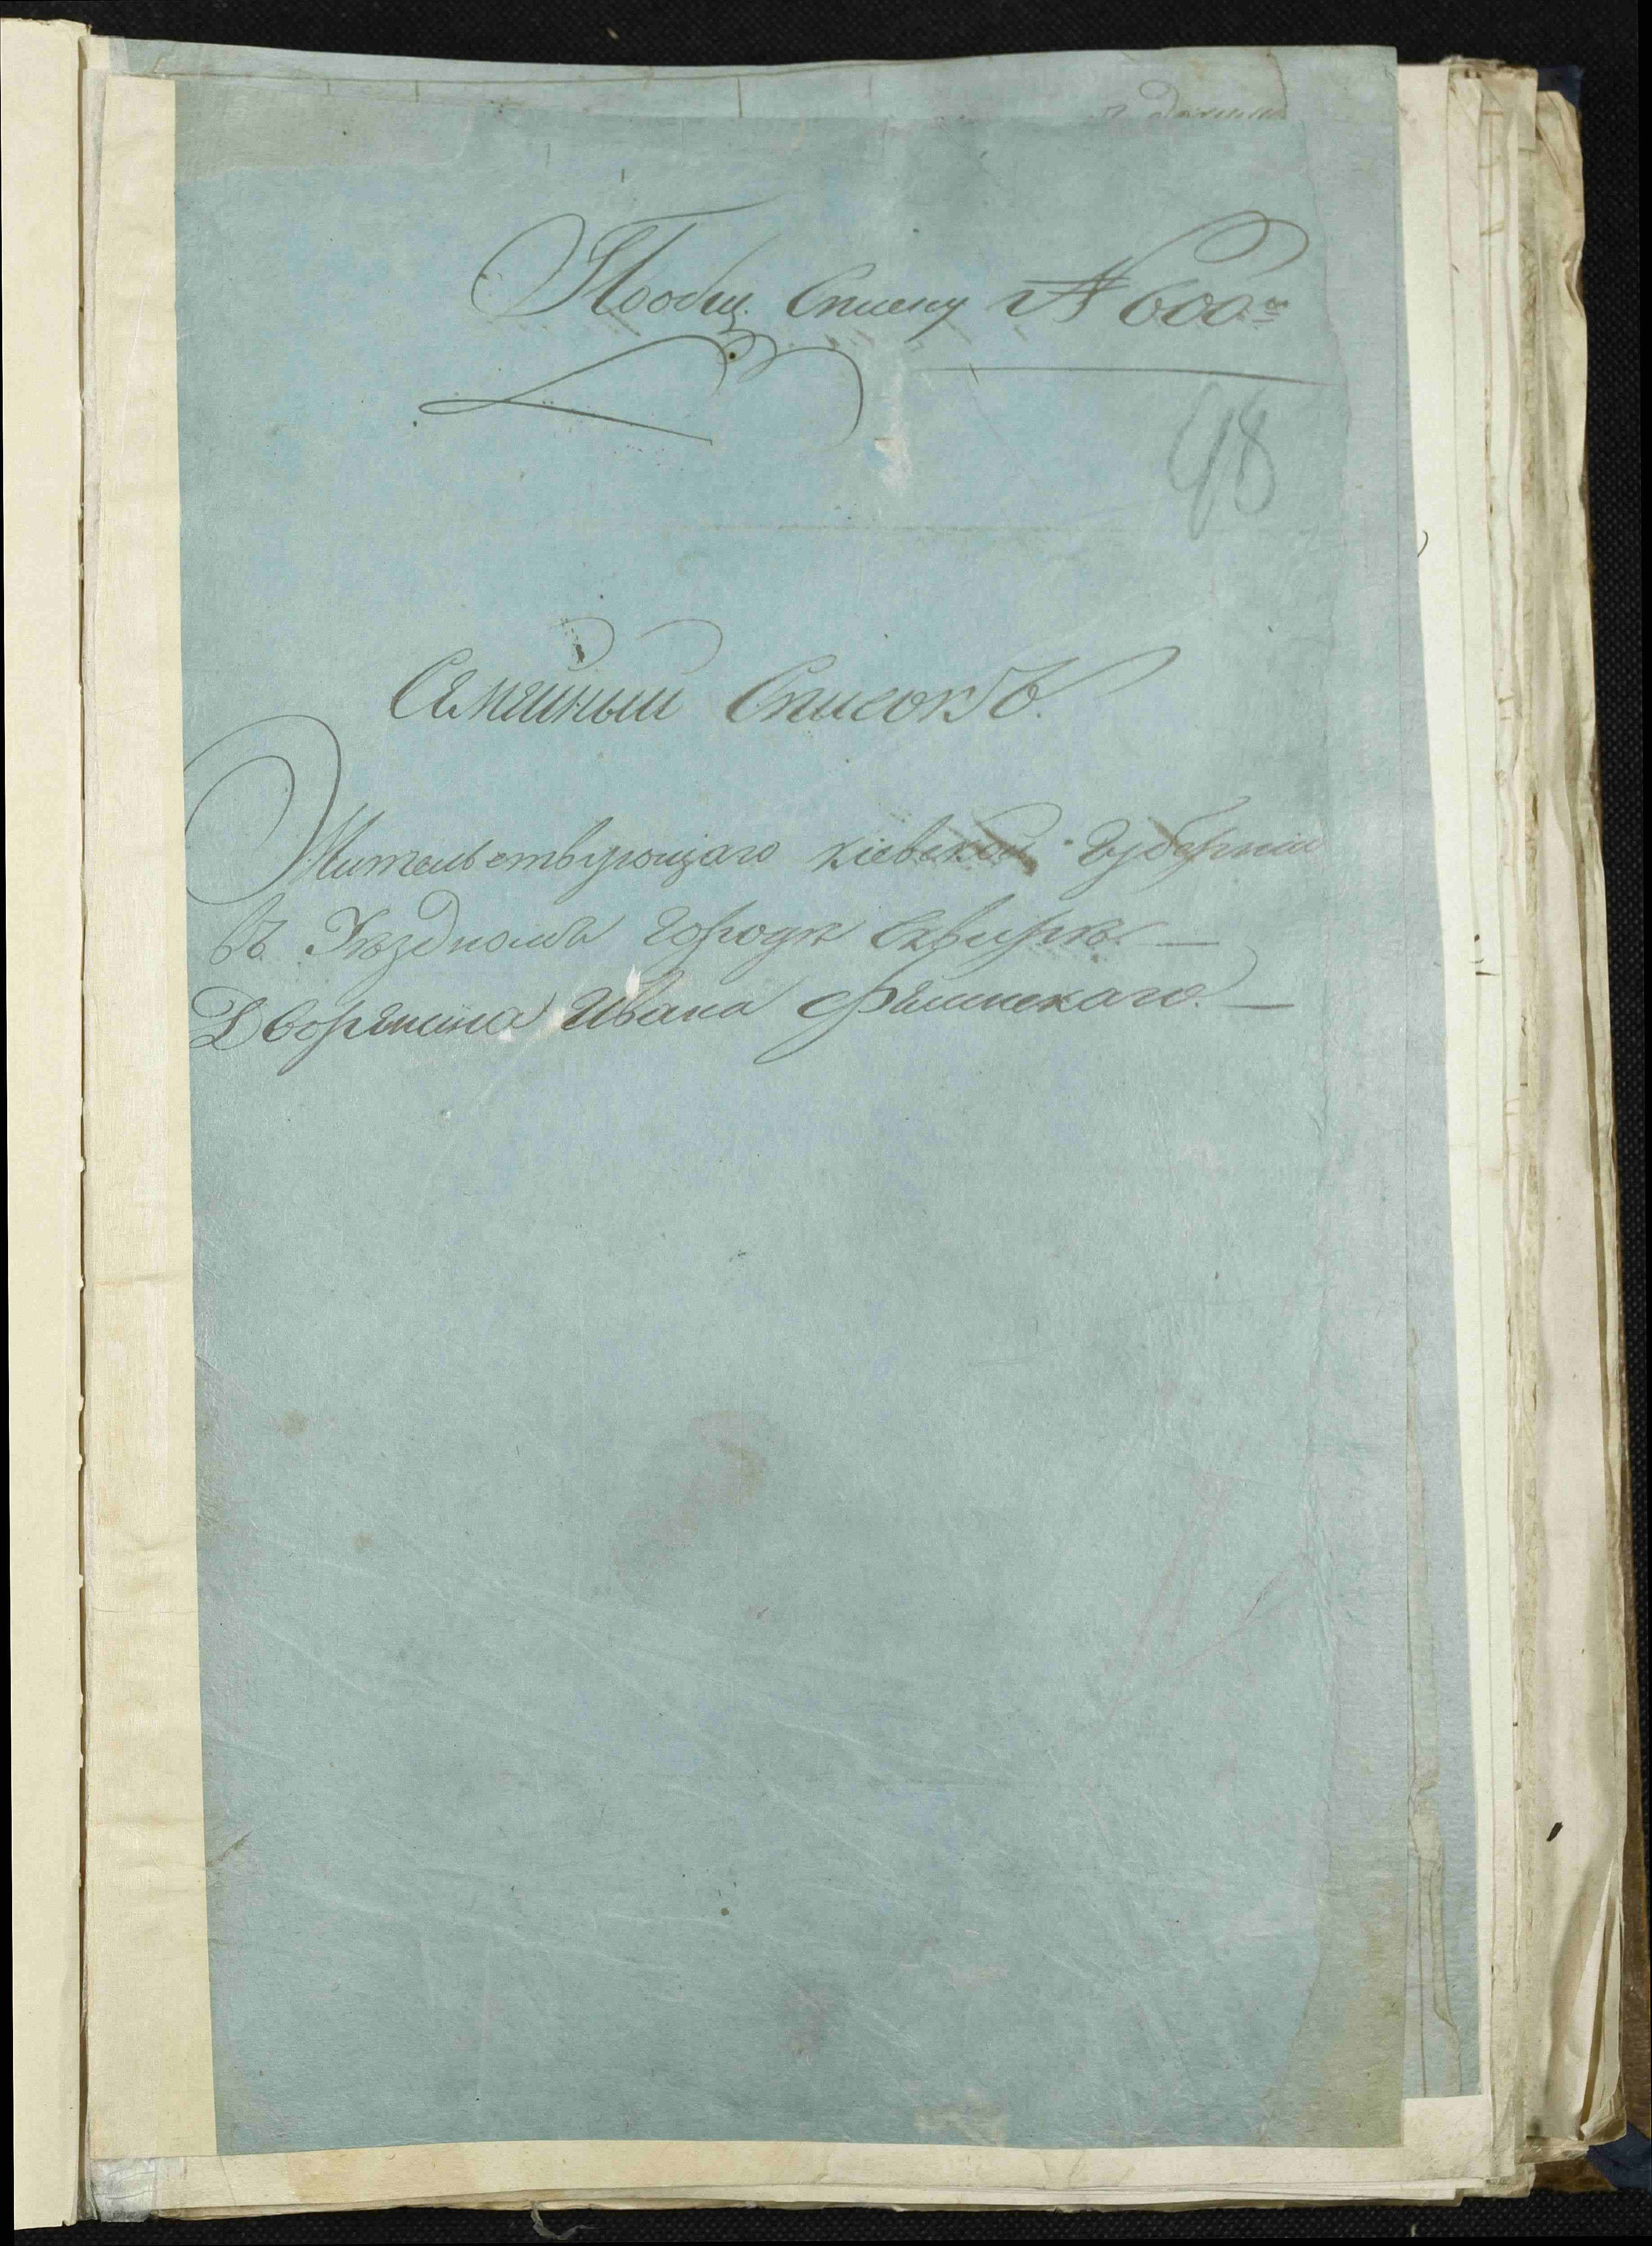 Пообщ. Списку № 600й
48
Семейный Списокъ.
Жительствующаго кіевской Губерніи
въ Уѣздномъ городѣ Сквирѣ. —
Дворянина Ивана —